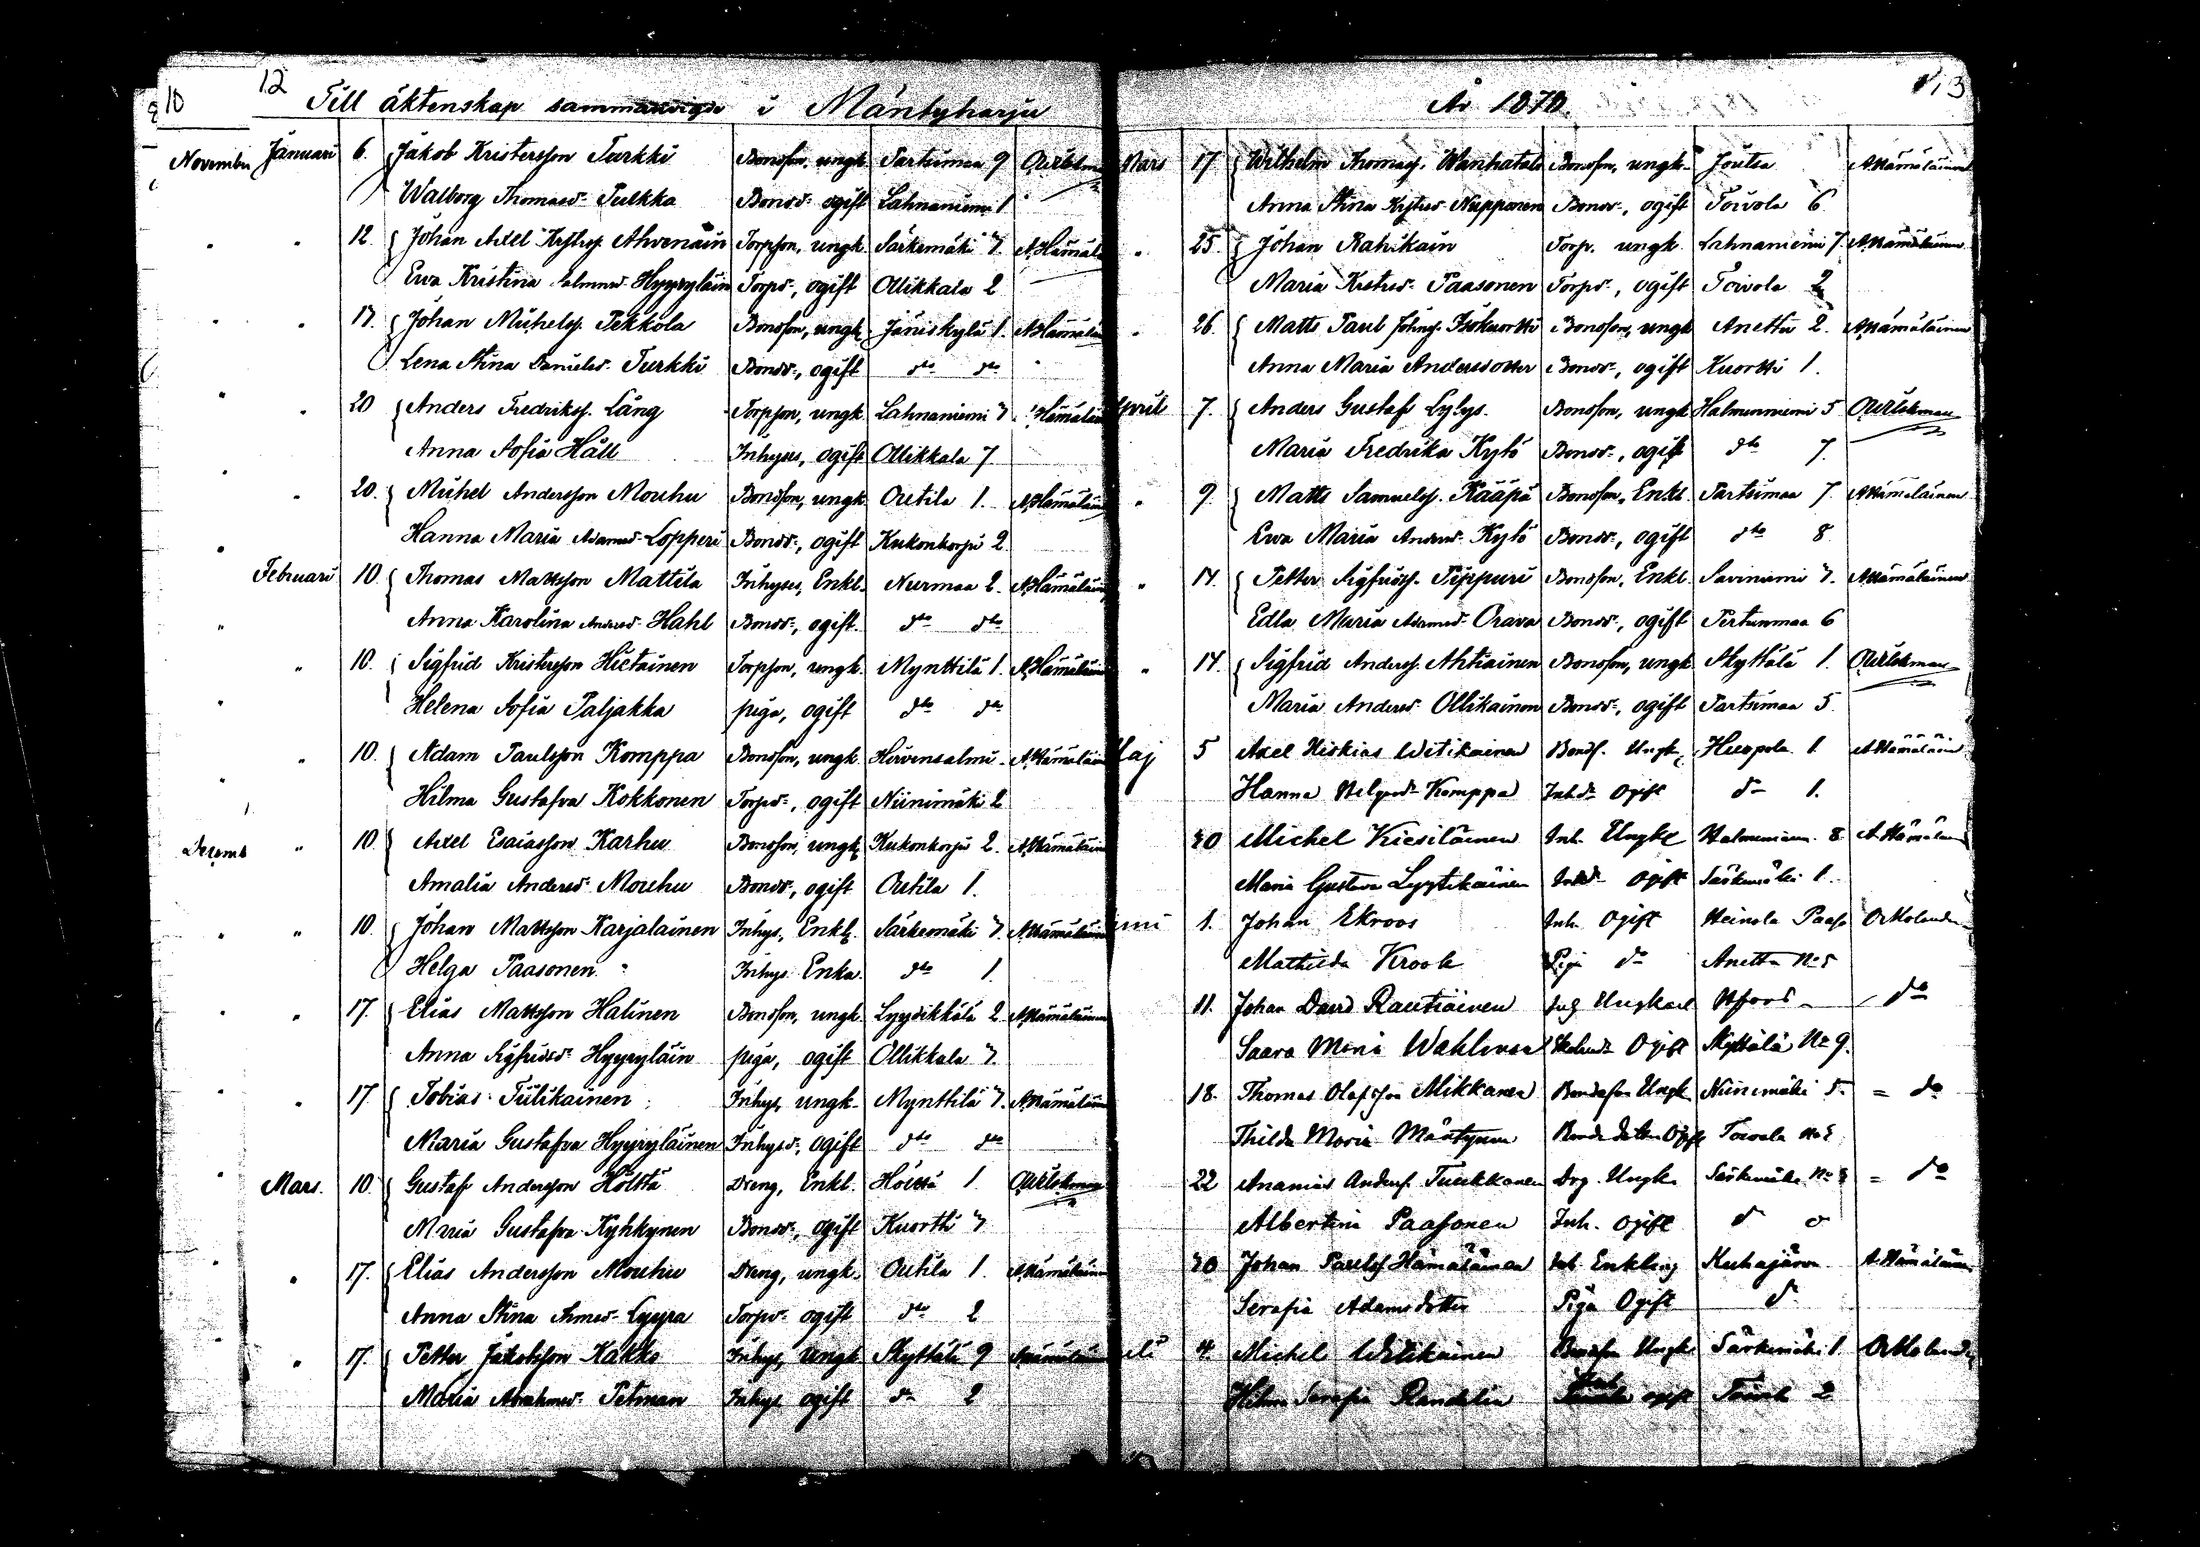 10
12 Till äktenskap sammanvigde i Mäntyharju
November Januari 6. Jakob Kristersson Turkki Bondson, ungk. Partsimaa 9
Walborg Thomasd:r Pulkka Bondd:r ogift Lahnaniemi 1
" " 12. Johan Axel Krstfss. Ahvenain Torpson, ungk. Särkemäki 7. A. Hämäl
Ewa Kristina Salomonsd. Hyyryläin Torpd:r, ogift Ollikkala 2
" " 17. Johan Michelss. Pekkola Bondson, ungk. Jäniskylä 1. A. Hämäläin
Lena Stina Danielsd:r Turkki Bondd:r, ogift d:to d:to
" " 20 Anders Fredrikss. Lång Torpson, ungk. Lahnaniemi 7 A. Hämäläin
Anna Sofia Häll Inhyses, ogift Ollikkala 7
" 20. Michel Andersson Mouhu Bondson, ungk. Outila 1. A. Hämäläin
Hanna Maria Adamsd:r Lopperi Bondd:r, ogift Kukonharju 2.
Februari 10. Thomas Mattsson Mattila Inhyses, Enkl. Nurmaa 2. A. Hämäläin
Anna Karolina Andersd:r Hahl Bondd:r, ogift. d:to d:to
" 10. Sigfrid Kristersson Hietainen Torpson, ungk. Mynttilä 1. A. Hämäläin
Helena Sofia Paljakka piga, ogift d:to d:to
" 10. Adam Paulsson Komppa Bondson, ungk. Hirvensalmi A. Hämäläin
Hilma Gustafva Kokkonen Torpd:r, ogift Niinimäki 2
Decemb " 10. Axel Esaiasson Karhu Bondson, ungk. Kukonharju 2. A. Hämäläin
Amalia Andersd:r Mouhu Bondd:r, ogift Outila 1.
" " 10. Johan Mattsson Karjalainen Inhys, Enkl. Särkemäki 7. A. Hämäläinen
Helga Paasonen Inhys. Enka. d:to 1.
" " 17. Elias Mattsson Halinen Bondson, ungk. Lyydikkälä 2. A. Hämäläinen
Anna Sigfridsd:r Hyyryläin piga, ogift Ollikkala 7.
" " 17. Tobias Tulikainen Inhys, ungk. Mynttilä 7. A. Hämäläin
Maria Gustafva Hyyryläinen Inhysd:r, ogift d:to d:to
" Mars. 10. Gustaf Andersson Hölttä Dreng, Enkl. 1
Maria Gustafva Kyhkynen Bondd:r, ogift Kuortti 7
" " 17. Elias Andersson Mouhu Dreng, ungk. Outila 1. A. Hämäläin
Anna Stina Lyyra Torpd:r ogift d:to 2
" " 17. Petter Jakobsson Kakko Inhys, ungk. Skyttälä 9 A. Hämäläin
Maria Abrahamsd:r Pitman Inhys, ogift d:o 2
År 1878. 13
Mars 17. Wilhelm Thomass. Wanhatalo Bondson, ungk. Joutsa A. Hämäläinen
Anna Stina Nupponen Bondd:r, ogift Toivola 6
" 25. Johan Rahikain Torp. ungk. Lahnaniemi 7. A. Hämäläinen
Maria Kristersd:r Paasonen Torpd:r, ogift Toivola 2
" 26. Matts Paul Johnss. Isokuortti Bondson, ungk Anettu 2. A. Hämäläinen
Anna Maria Andersdotter Bondd:r, ogift Kuortti 1.
April 7. Anders Gustaf Lylys. Bondson, ungk Halmeniemi 5
Maria Fredrika Kytö Bondd:r, ogift d:to 7.
" 9. Matts Samuelss. Kääpä Bondson, Enkl. Partsimaa 7. A. Hämäläinen
Ewa Maria Andersd. Kytö Bondd:r, ogift d:to 8
" 14. Petter Sigfridss. Pippuri Bondson, Enkl. Saviniemi 7. A. Hämäläinen
Edla Maria Adamsd:r Orava Bondd:r, ogift Pertunmaa 6
" 14. Sigfrid Anderss. Ahtiainen Bondson, ungk Skyttälä 1.
Maria Andersd. Ollikainen Bondd:r, ogift Partsimaa 5.
Maj 5 Axel Hiskias Witikainen Bonds. Ungk. 1. A. Hämäläin
Hanna Komppa Inhd:r Ogift d:o 1.
Michel Kiesiläinen Inh. Ungk. Halmeniemi 8 A. Hämäläin
Maria Gustava Lyytikäinen Inhd:r Ogift Särkemäki 1.
1. Johan Ekroos Inh. Ogift Heinola
Mathilda Krook Piga d:o Anettu No 5
11. Johan David Rautiainen Ungkarl d:o
Saara Maria Ogift Skyttälä No 9.
18. Thomas Olofsson Mikkanen Bondeson Ungk. Niinimäki 5. = d:o
Thilda Maria Mäntynen Bonde dotter Ogift Toivola
22 Ananias Anderss. Tuukkanen Drg. Ungk. Särkemäki No = d:o
Albertina Paasonen Inh. Ogift d o
Johan Paulss Hämäläinen Inh Enkling Kuhajärvi A. Hämäläinen
Serafia Adamsdotter Piga Ogift d:o
4. Michel Witikainen Bondson Ungk. Särkemäki 1
Hilma Serafia Randelin ogift Toivola 2